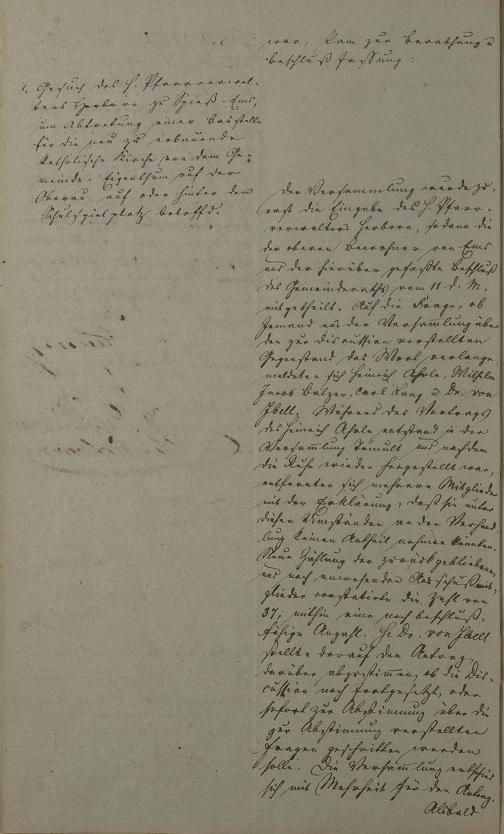 war, kam zur Berathung u
Beschlußfassung:
1. Gesuch des H. Pfarrverwal-
ters Herborn zu Spieß-Ems,
um Abtretung einer Baustelle
für die neu zu erbauende
katholische Kirche von dem Ge-
meinde-Eigenthum auf der
Oberau, auf oder hinter dem
Schulspielplatz betreffd.
Der Versammlung wurde zu-
erst die Eingabe des H. Pfarr-
verwalters Herborn, sodann die
der oberen Bewohner von Ems
und der hierüber gefaßte Beschluß
des Gemeinderaths vom 11 d. M.
mitgetheilt. Auf die Frage, ob
Jemand aus der Versammlung über
den zur Discussion verstellten
Gegenstand das Wort verlange
meldeten sich Heinrich Wilhelm
Jacob Balzer, Carl u Dr. von
Ibell. Während des Vortrags
des Heinrich entstand in der
Versammlung Tumult und nachdem
die Ruhe wieder hergestellt war,
entfernten sich mehrere Mitglieder
mit der Erklärung, daß sie unter
diesen Umständen an der Verhand
lung keinen Antheil nehmen könnten.
Neue Zählung der zurückgebliebenen
und noch anwesenden Ausschußmit-
glieder constatirte die Zahl von
37, mithin eine noch beschluß-
fähige Anzahl. H. Dr. von Ibell
stellte darauf den Antrag,
darüber abzustimmen, ob die Dis-
cussion noch fortgesetzt, oder
sofort zur Abstimmung über die
zur Abstimmung verstellten
Fragen geschritten werden
solle. Die Versammlung entschied
sich mit Mehrheit für den Antrag.
Alsbald